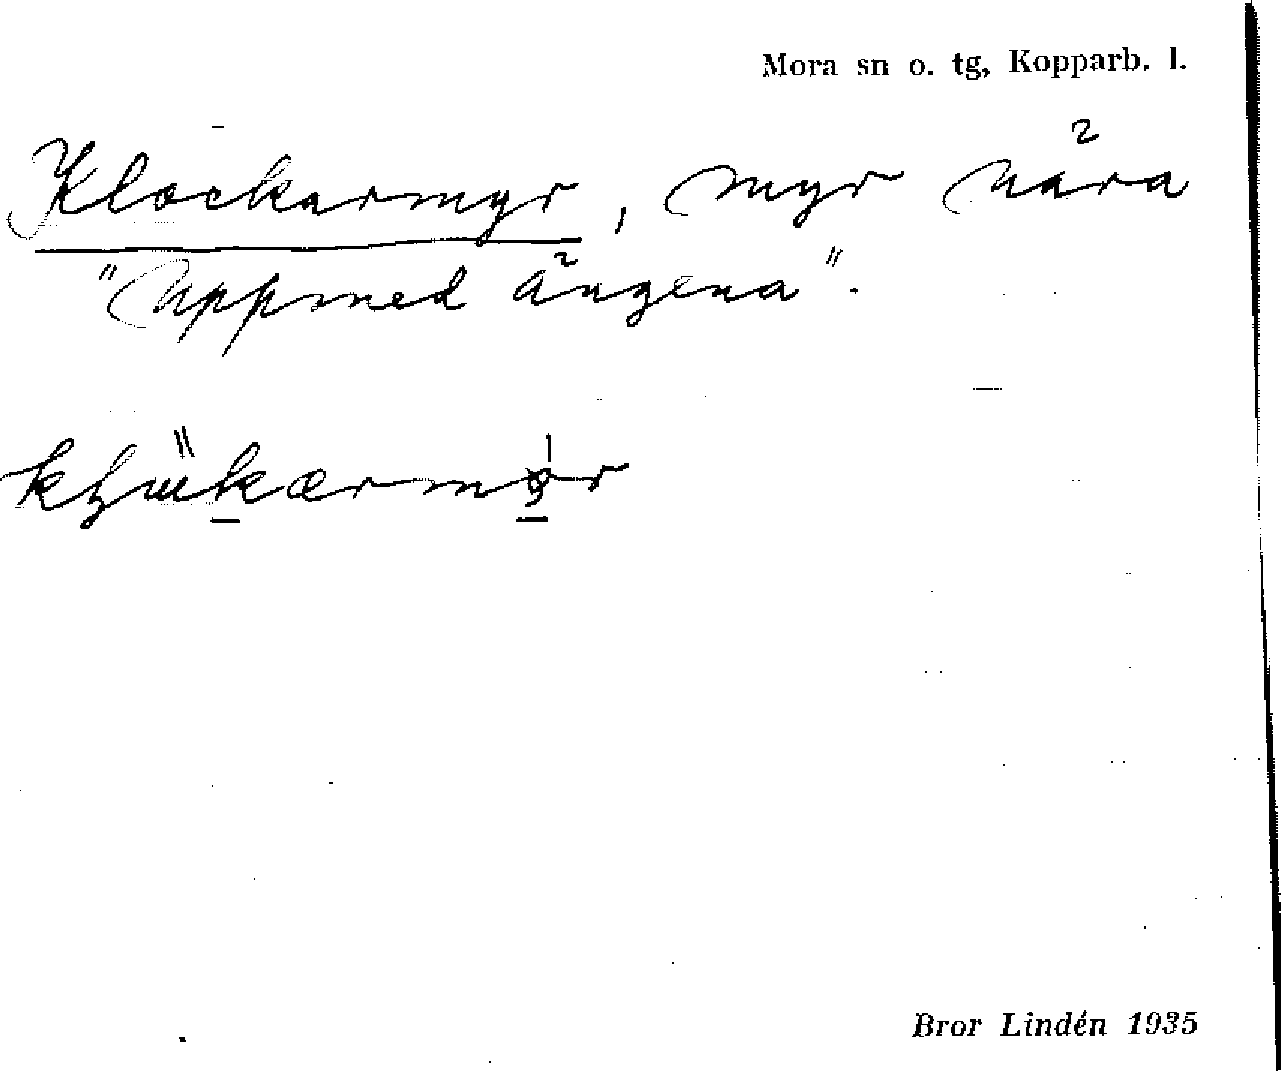 Mora sn o. tg, Kopparb. l.
Klockarmyr, myr nära
"Uppmed ängena".
Bror Lindén 1935